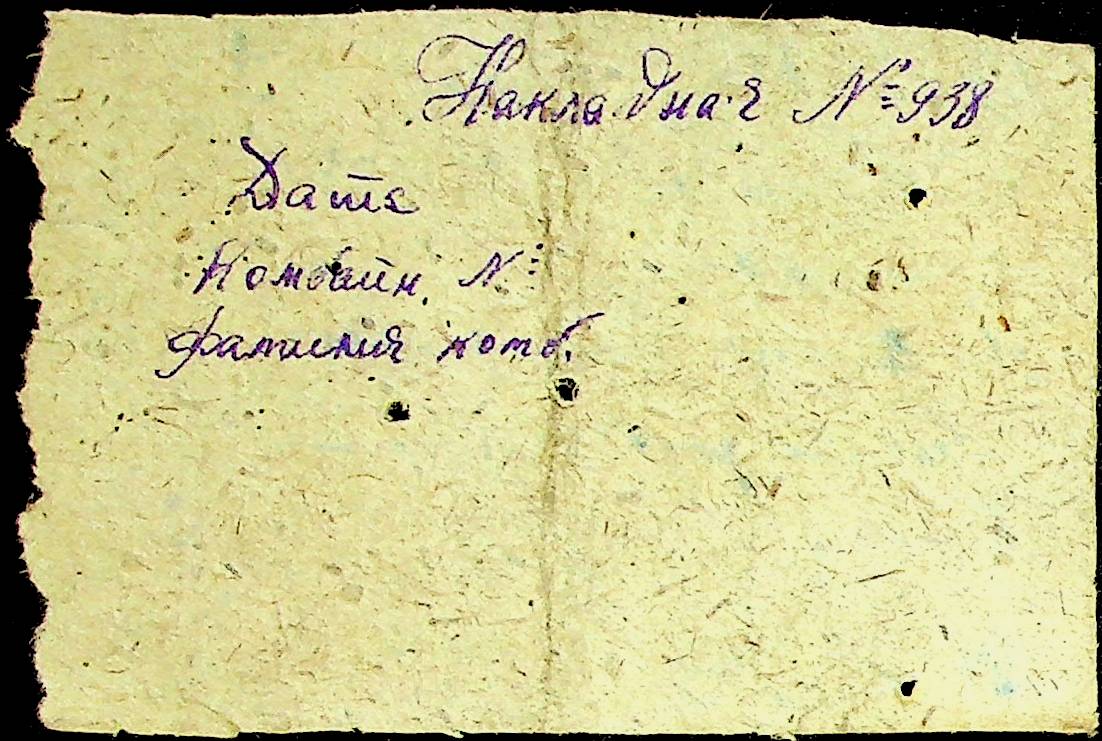 Накладная № 938
Дата
Комбайн. №
Фамилия комб.